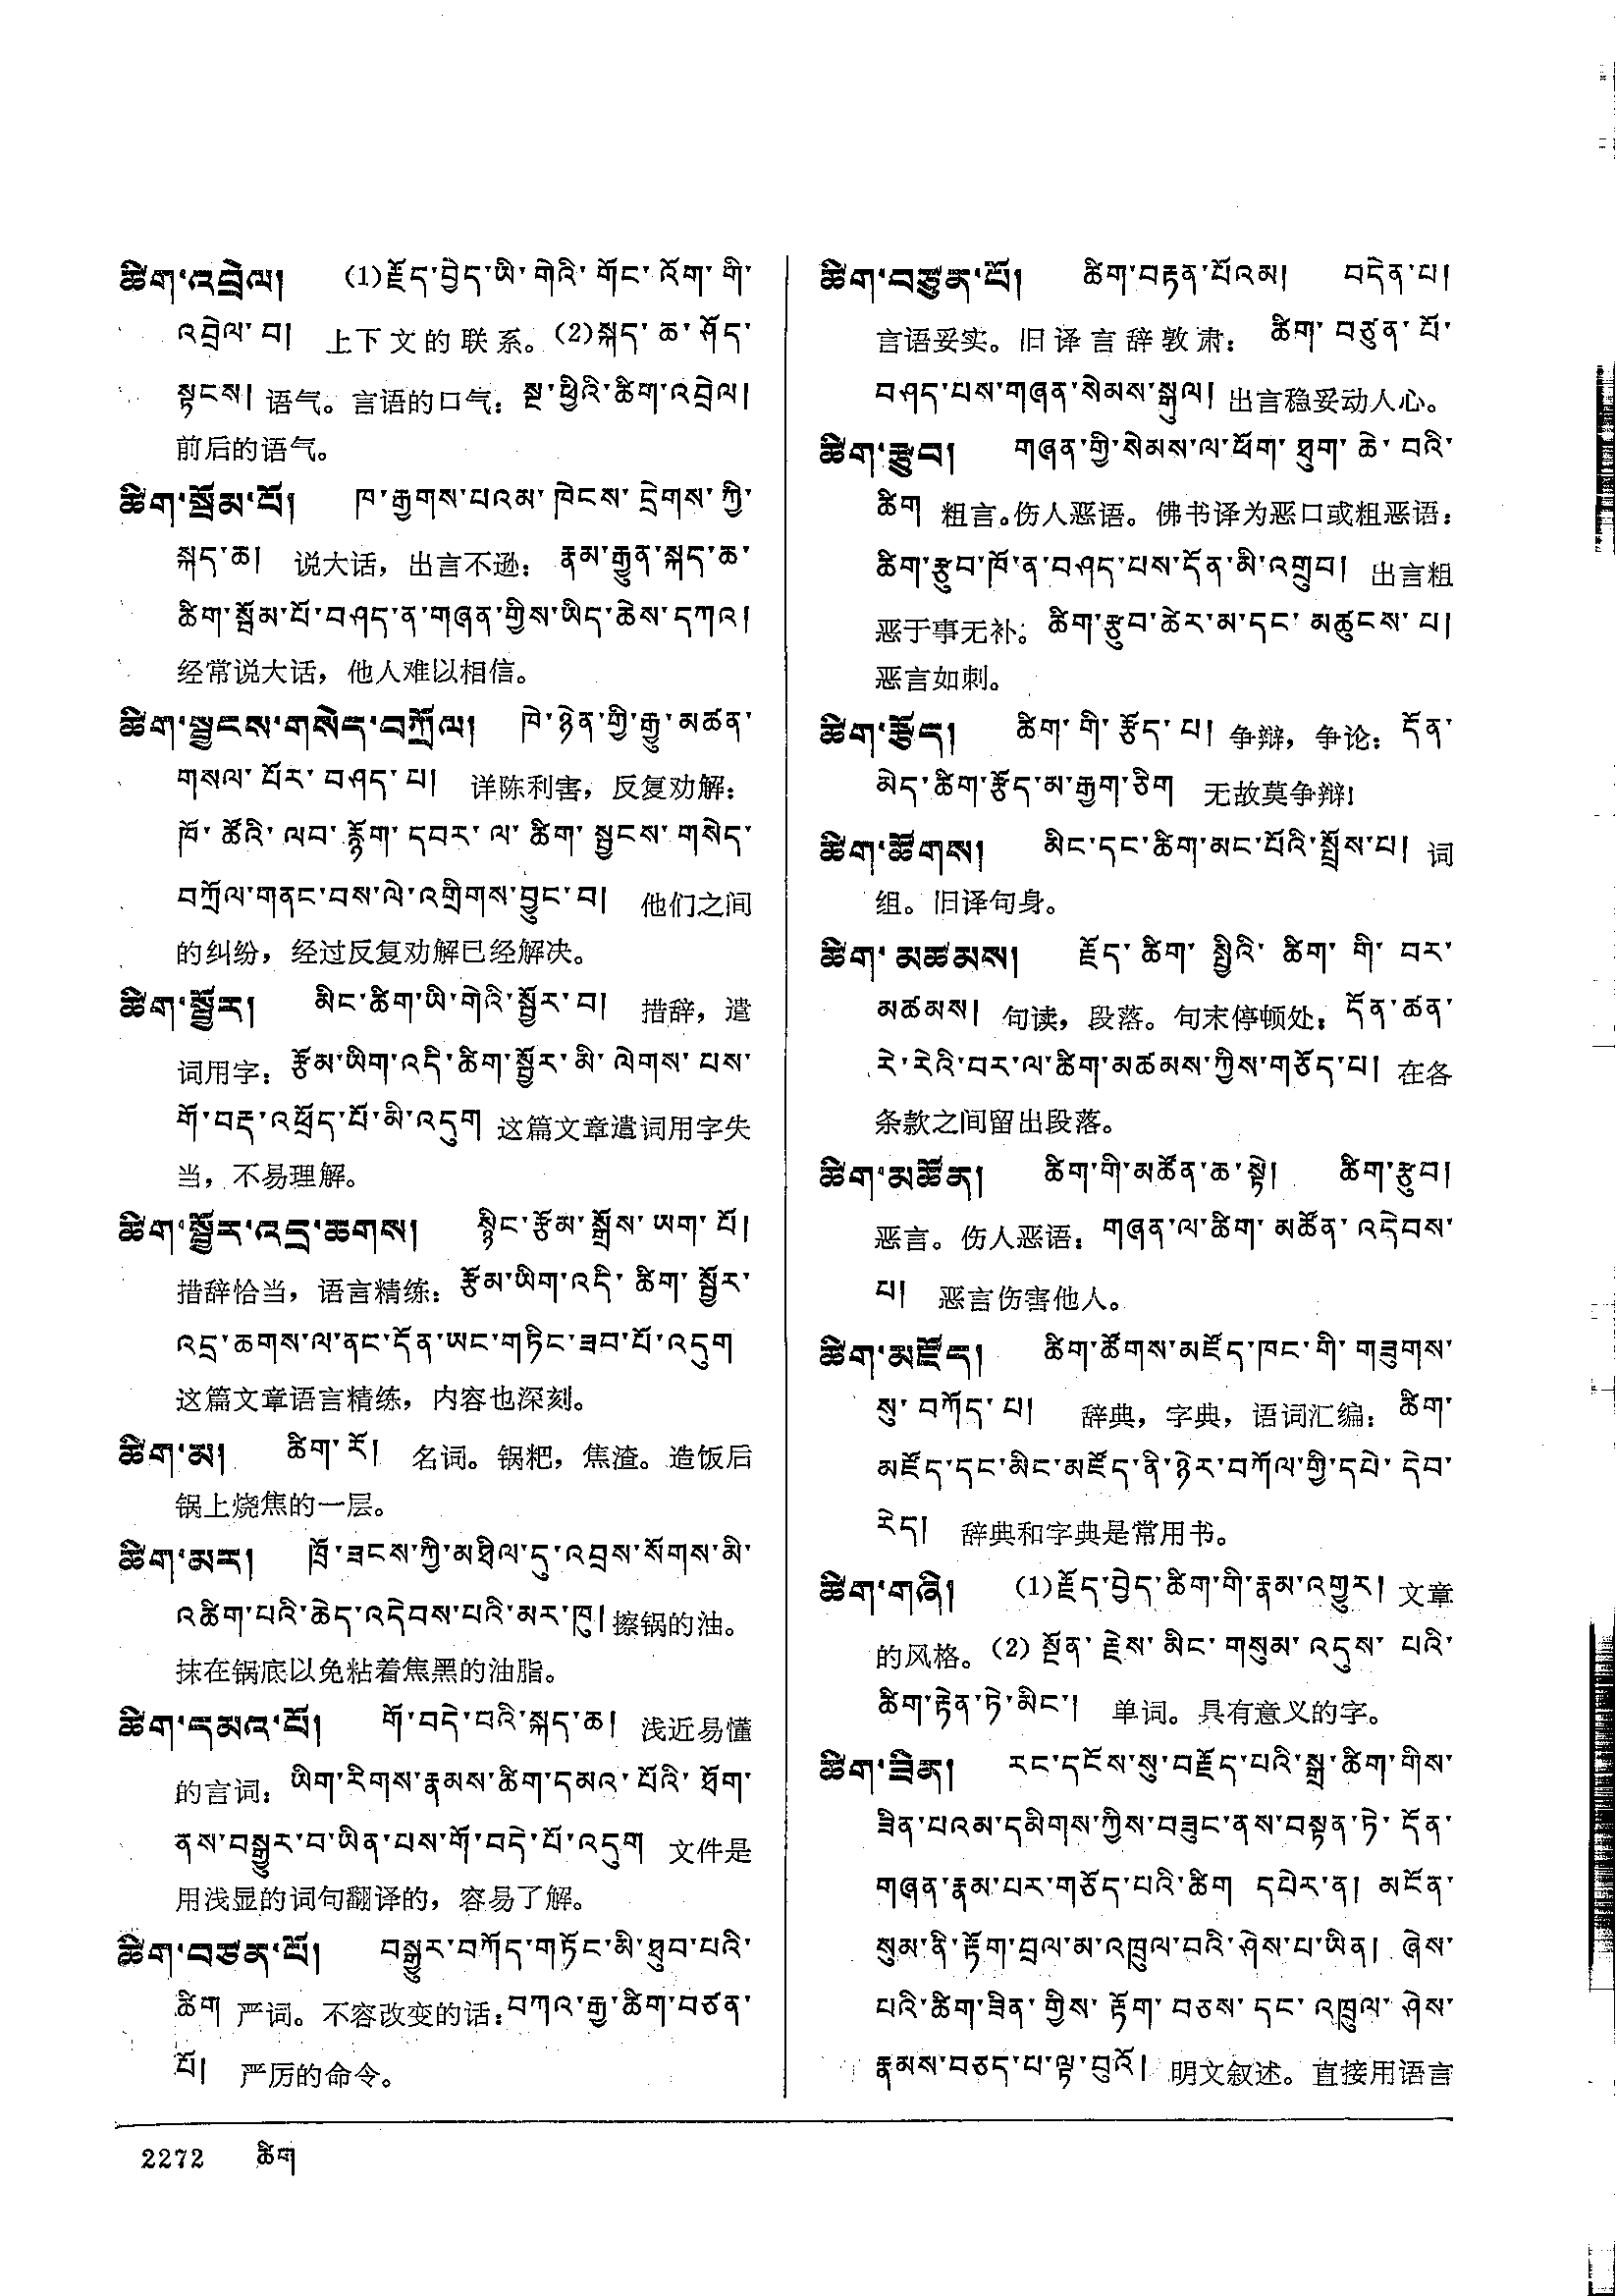 ཚིག་འབྲེལ། (1)རྗོད་བྱེད་ཡི་གེའི་ གོང་ འོག་ གི་
འབྲེལ་ བ། 上下文的联系。(2)སྐད་ ཆ་ ཤོད་
སྟངས། 语气。言语的口气：སྔ་ཕྱིའི་ཚིག་འབྲེལ།
前后的语气。
ཚིག་སྦོམ་པོ། ཁ་རྒྱགས་པའམ་ ཁེངས་ དྲེགས་ ཀྱི་
སྐད་ཆ། 说大话，出言不逊：རྣམ་རྒྱུན་སྐད་ཆ་
ཚིག་སྦོམ་པོ་བཤད་ན་གཞན་གྱིས་ཡིད་ཆེས་དཀའ།
经常说大话，他人难以相信。
ཚིག་སྦྱངས་གསེད་བཀྲོལ། ཁེ་ཉེན་གྱི་རྒྱུ་མཚན་
གསལ་ པོར་ བཤད་ པ། 详陈利害，反复劝解：
ཁོ་ ཚོའི་ ལབ་ རྙོག་ དབར་ ལ་ ཚིག་ སྦྱངས་ གསེད་
བཀྲོལ་གནང་བས་ལེ་འགྲིགས་བྱུང་བ། 他们之间
的纠纷，经过反复劝解已经解决。
ཚིག་སྦྱོར། མིང་ཚིག་ཡི་གེའི་སྦྱོར་བ། 措辞，遣
词用字：རྩོམ་ཡིག་འདི་ཚིག་སྦྱོར་མི་ ལེགས་ པས་
གོ་བརྡ་འཕྲོད་པོ་མི་འདུག 这篇文章遣词用字失
当，不易理解。
ཚིག་སྦྱོར་འདྲ་ཆགས། སྙིང་རྩོམ་སྒྲོས་ ཡག་ པོ།
措辞恰当，语言精练：རྩོམ་ཡིག་འདི་ ཚིག་ སྦྱོར་
འདྲ་ཆགས་ལ་ནང་དོན་ཡང་གཏིང་ཟབ་པོ་འདུག
这篇文章语言精练，内容也深刻。
ཚིག་མ། ཚིག་ རོ། 名词。锅粑，焦渣。造饭后
锅上烧焦的一层。
ཚིག་མར། ཁྲོ་ཟངས་ཀྱི་མཐིལ་དུ་འབྲས་སོགས་མི་
འཚིག་པའི་ཆེད་འདེབས་པའི་མར་ཁུ། 擦锅的油。
抹在锅底以免粘着焦黑的油脂。
ཚིག་དམའ་པོ། གོ་བདེ་བའི་སྐད་ཆ། 浅近易懂
的言词：ཡིག་རིགས་རྣམས་ཚིག་དམའ་ པོའི་ ཐོག་
ནས་བསྒྱུར་བ་ཡིན་པས་གོ་བདེ་པོ་འདུག 文件是
用浅显的词句翻译的，容易了解。
ཚིག་བཙན་པོ། བསྒྱུར་བཀོད་གཏོང་མི་ཐུབ་པའི་
ཚིག 严词。不容改变的话：བཀའ་རྒྱ་ཚིག་བཙན་
པོ། 严厉的命令。
ཚིག་བཙུན་པོ། ཚིག་བརྟན་པོའམ། བདེན་པ།
言语妥实。旧译言辞敦肃：ཚིག་ བཙུན་ པོ་
བཤད་པས་གཞན་སེམས་སྐུལ། 出言稳妥动人心。
ཚིག་རྩུབ། གཞན་གྱི་སེམས་ལ་ཕོག་ ཐུག་ ཆེ་ བའི་
ཚིག 粗言。伤人恶语。佛书译为恶口或粗恶语：
ཚིག་རྩུབ་ཁོ་ན་བཤད་པས་དོན་མི་འགྲུབ། 出言粗
恶于事无补。ཚིག་རྩུབ་ཚེར་མ་དང་ མཚུངས་ པ།
恶言如刺。
ཚིག་རྩོད། ཚིག་ གི་ རྩོད་ པ། 争辩，争论：དོན་
མེད་ཚིག་རྩོད་མ་རྒྱག་ཅིག 无故莫争辩！
ཚིག་ཚོགས། མིང་དང་ཚིག་མང་པོའི་སྤྲོས་པ། 词
组。旧译句身。
ཚིག་མཚམས། རྗོད་ ཚིག་ སྤྱིའི་ ཚིག་ གི་ བར་
མཚམས། 句读，段落。句末停顿处：དོན་ཚན་
རེ་རེའི་བར་ལ་ཚིག་མཚམས་ཀྱིས་གཅོད་པ། 在各
条款之间留出段落。
ཚིག་མཚོན། ཚིག་གི་མཚོན་ཆ་སྟེ། ཚིག་རྩུབ།
恶言。伤人恶语：གཞན་ལ་ཚིག་ མཚོན་ འདེབས་
པ། 恶言伤害他人。
ཚིག་མཛོད། ཚིག་ཚོགས་མཛོད་ཁང་གི་ གཟུགས་
སུ་ བཀོད་ པ། 辞典，字典，语词汇编：ཚིག་
མཛོད་དང་མིང་མཛོད་ནི་ཉེར་བཀོལ་གྱི་དཔེ་ དེབ་
རེད། 辞典和字典是常用书。
ཚིག་གཞི། (1)རྗོད་བྱེད་ཚིག་གི་རྣམ་འགྱུར། 文章
的风格。(2) སྔོན་ རྗེས་ མིང་ གསུམ་ འདུས་ པའི་
ཚིག་རྟེན་ཏེ་མིང་། 单词。具有意义的字。
ཚིག་ཟིན། རང་དངོས་སུ་བརྗོད་པའི་སྒྲ་ཚིག་གིས་
ཟིན་པའམ་དམིགས་ཀྱིས་བཟུང་ནས་བསྟན་ཏེ་ དོན་
གཞན་རྣམ་པར་གཅོད་པའི་ཚིག དཔེར་ན། མངོན་
སུམ་ནི་རྟོག་བྲལ་མ་འཁྲུལ་བའི་ཤེས་པ་ཡིན། ཞེས་
པའི་ཚིག་ཟིན་ གྱིས་ རྟོག་ བཅས་ དང་ འཁྲུལ་ ཤེས་
རྣམས་བཅད་པ་ལྟ་བུའོ། 明文叙述。直接用语言
2272 ཚིག